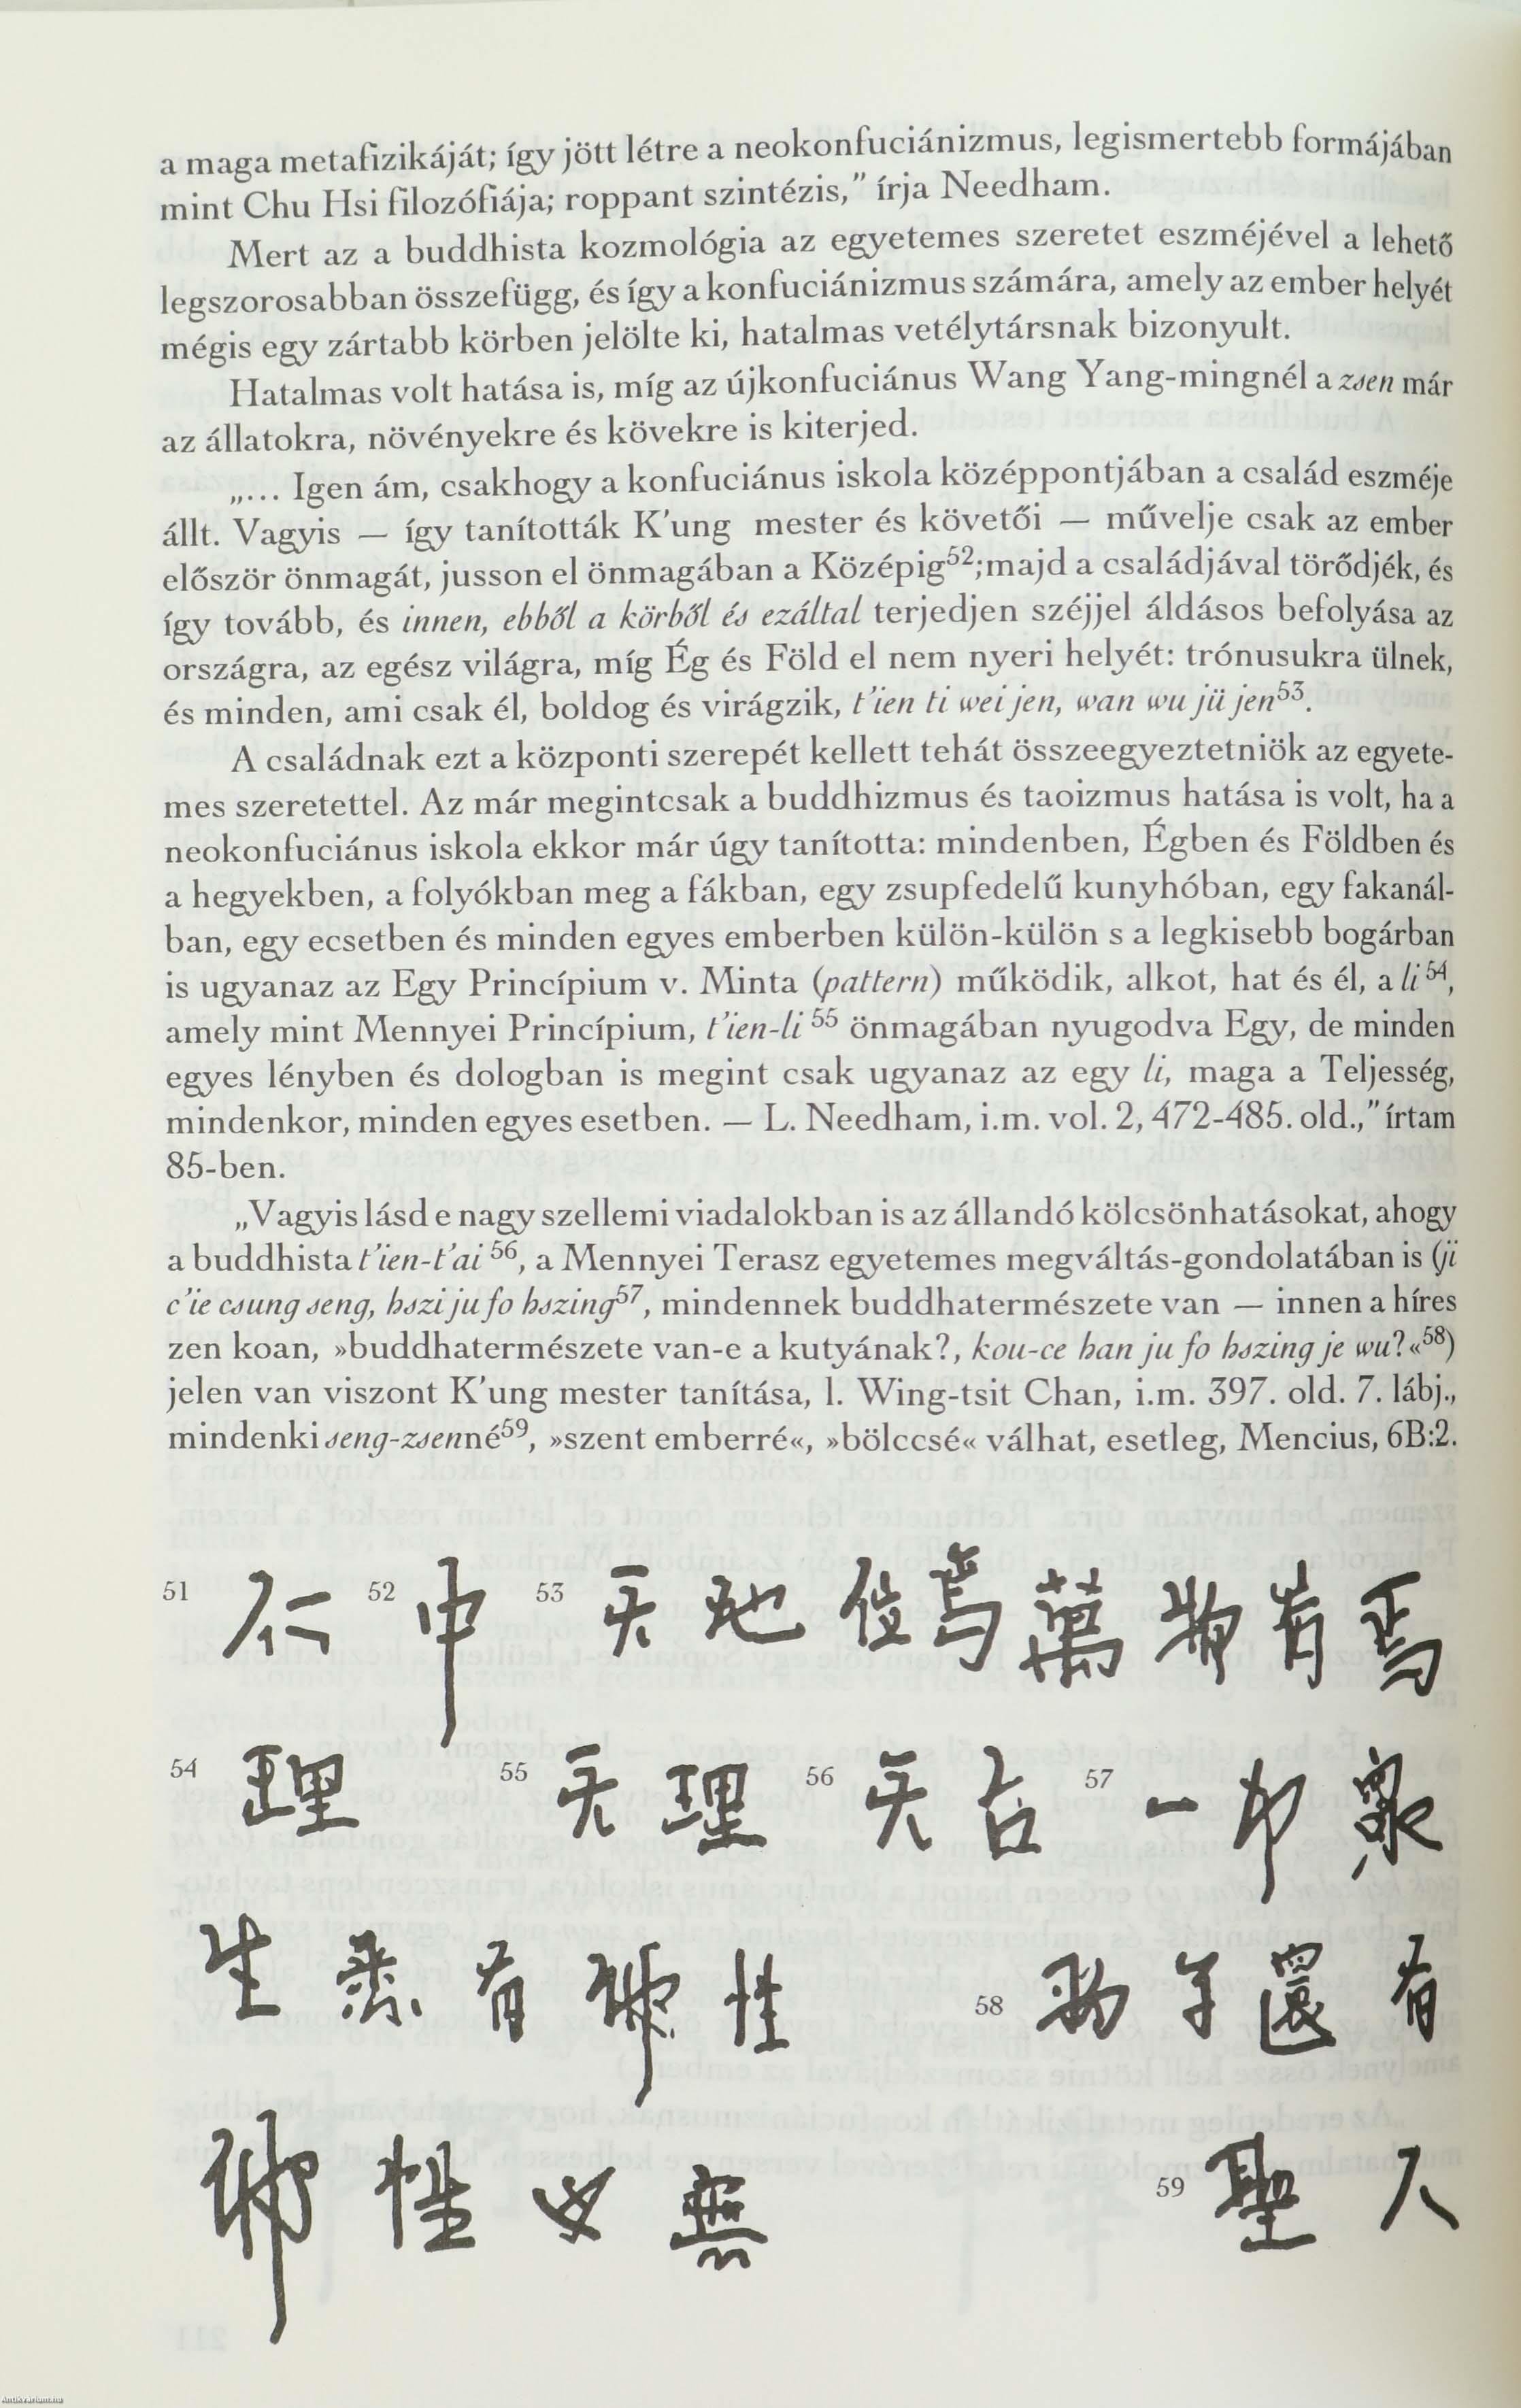 a maga metafizikáját; így jött létre a neokonfuciánizmus, legismertebb formájában
mint Chu Hsi filozófiája; roppant szintézis,” írja Needham.
Mert az a buddhista kozmológia az egyetemes szeretet eszméjével a lehető
legszorosabban összefügg, és így a konfuciánizmus számára, amely az ember helyét
mégis egy zártabb körben jelölte ki, hatalmas vetélytársnak bizonyult.
Hatalmas volt hatása is, míg az újkonfuciánus Wang Yang-mingnél a zsen már
az állatokra, növényekre és kövekre is kiterjed.
„... Igen ám, csakhogy a konfuciánus iskola középpontjában a család eszméje
állt. Vagyis — így tanították K'ung mester és követői — művelje csak az ember
először önmagát, jusson el önmagában a Középig52;majd a családjával törődjék, és
így tovább, és innen, ebből a körből és ezáltal terjedjen széjjel áldásos befolyása az
országra, az egész világra, míg Ég és Föld el nem nyeri helyét: trónusukra ülnek,
és minden, ami csak él, boldog és virágzik, t'ien ti wei jen, wan wu jü jen53.
A családnak ezt a központi szerepét kellett tehát összeegyeztetniök az egyete-
mes szeretettel. Az már megintcsak a buddhizmus és taoizmus hatása is volt, ha a
neokonfuciánus iskola ekkor már úgy tanította: mindenben, Égben és Földben és
a hegyekben, a folyókban meg a fákban, egy zsupfedelű kunyhóban, egy fakanál-
ban, egy ecsetben és minden egyes emberben külön-külön s a legkisebb bogárban
is ugyanaz az Egy Princípium v. Minta (pattern) működik, alkot, hat és él, a li54,
amely mint Mennyei Princípium, t'ien-li55 önmagában nyugodva Egy, de minden
egyes lényben és dologban is megint csak ugyanaz az egy li, maga a Teljesség,
mindenkor, minden egyes esetben. — L. Needham, i.m. vol. 2, 472-485. old.,” írtam
85-ben.
„Vagyis lásd e nagy szellemi viadalokban is az állandó kölcsönhatásokat, ahogy
a buddhista t'ien-t'ai56, a Mennyei Terasz egyetemes megváltás-gondolatában is (ji
c'ie csung seng, hszi ju fo hszing57, mindennek buddhatermészete van — innen a híres
zen koan, »buddhatermészete van-e a kutyának?, kou-ce han ju fo hszing je wu?«58)
jelen van viszont K'ung mester tanítása, l. Wing-tsit Chan, i.m. 397. old. 7. lábj.,
mindenki seng-zsenné59, »szent emberré«, »bölccsé« válhat, esetleg, Mencius, 6B:2.
51 仁 52 中 53 天 地 位 焉 萬 物 育 焉
54 理 55 天 理 56 天 台 57 一 切 眾
生 悉 有 佛 性 58 狗 子 還 有
佛 性 也 無 59 聖 人
Antikvarium.hu